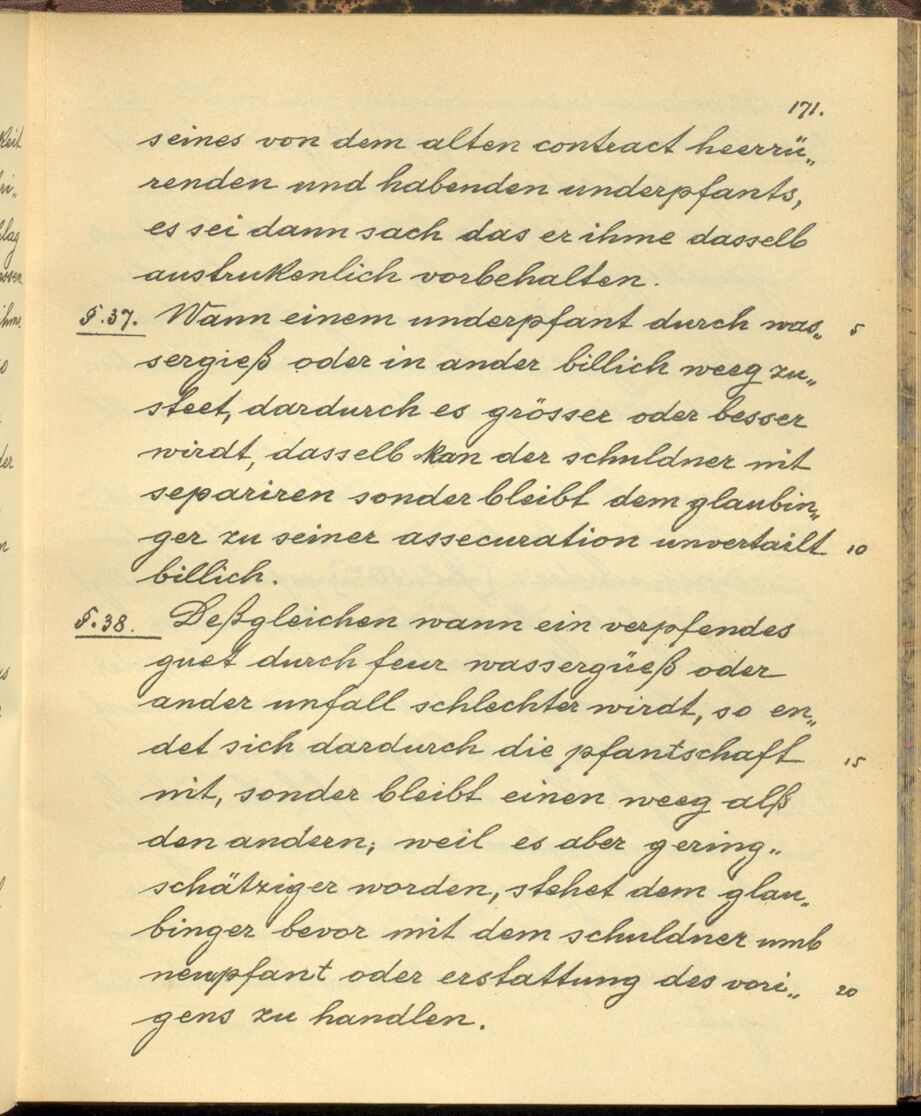 171.
seines von dem alten contract heerrü„
renden und habenden underpfants,
es sei dann sach das er ihme dasselb
austrukenlich vorbehalten.
§. 37. Wann einem underpfant durch was„ 5
sergieß oder in ander billich weeg zu„
steet, dardurch es grösser oder besser
wirdt, dasselb kan der schuldner nit
separiren sonder bleibt dem glaubin„
ger zu seiner assecuration unvertailt 10
billich.
§. 38. Deßgleichen wann ein verpfendes
guet durch feur wassergüeß oder
ander unfall schlechter wirdt, so en„
det sich dardurch die pfantschaft 15
nit, sonder bleibt einen weeg alß
den andern; weil es aber gering„
schätziger worden, stehet dem glau„
binger bevor mit dem schuldner umb
neupfant oder erstattung des vori„ 20
gens zu handlen.